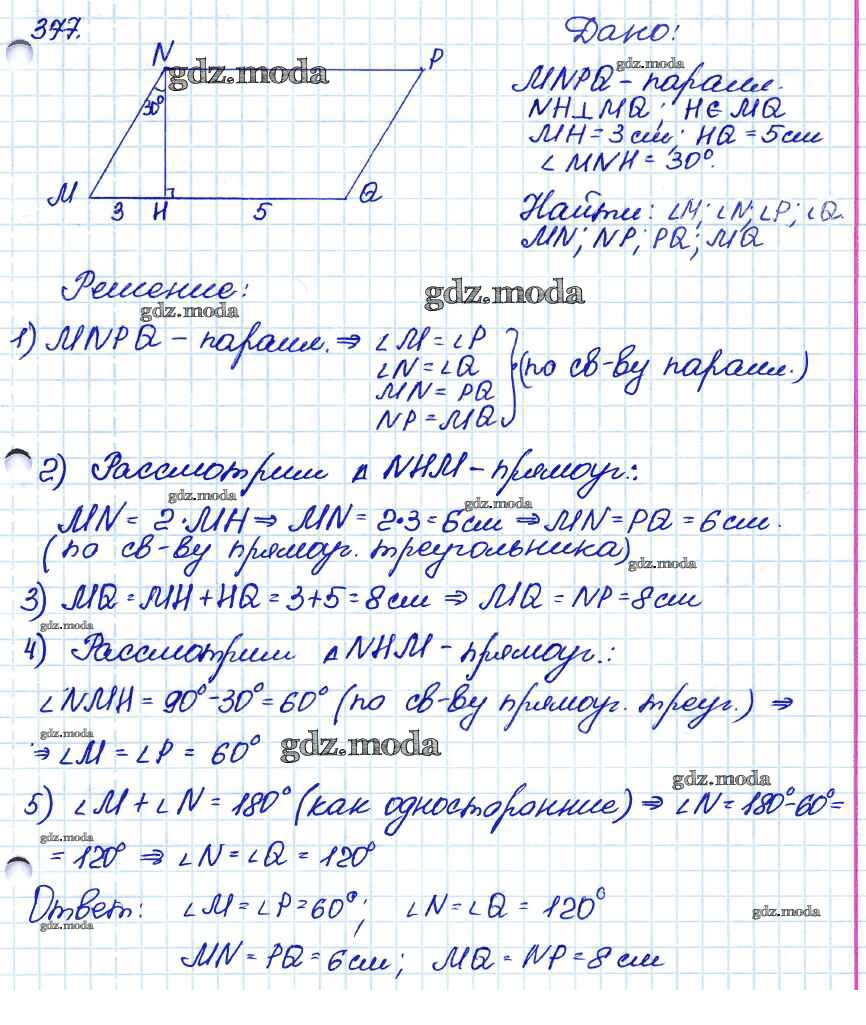 377.
Дано:
N
P
gdz.moda
gdz.moda
30°
MNPQ - паралл.
NH⊥MQ; H∈MQ
MH = 3 см; HQ = 5 см
∠MNH = 30°.
M
3
H
5
Q
Найти: ∠M; ∠N; ∠P; ∠Q.
MN; NP; PQ; MQ
Решение:
gdz.moda
gdz.moda
1) MNPQ - паралл. ⇒ ∠M = ∠P
∠N = ∠Q
MN = PQ
NP = MQ
(по св-ву паралл.)
2) Рассмотрим Δ NHM - прямоуг.:
gdz.moda
gdz.moda
MN = 2·MH ⇒ MN = 2·3 = 6см ⇒ MN = PQ = 6 см.
(по св-ву прямоуг. треугольника)
gdz.moda
3) MQ = MH + HQ = 3+5 = 8 см ⇒ MQ = NP = 8 см
gdz.moda
4) Рассмотрим Δ NHM - прямоуг.:
∠NMH = 90°-30° = 60° (по св-ву прямоуг. треуг.) ⇒
gdz.moda
⇒ ∠M = ∠P = 60°
gdz.moda
gdz.moda
5) ∠M + ∠N = 180° (как односторанние) ⇒ ∠N = 180°-60° =
gdz.moda
= 120° ⇒ ∠N = ∠Q = 120°
Ответ: ∠M = ∠P = 60°; ∠N = ∠Q = 120°
gdz.moda
gdz.moda
MN = PQ = 6 см; MQ = NP = 8 см